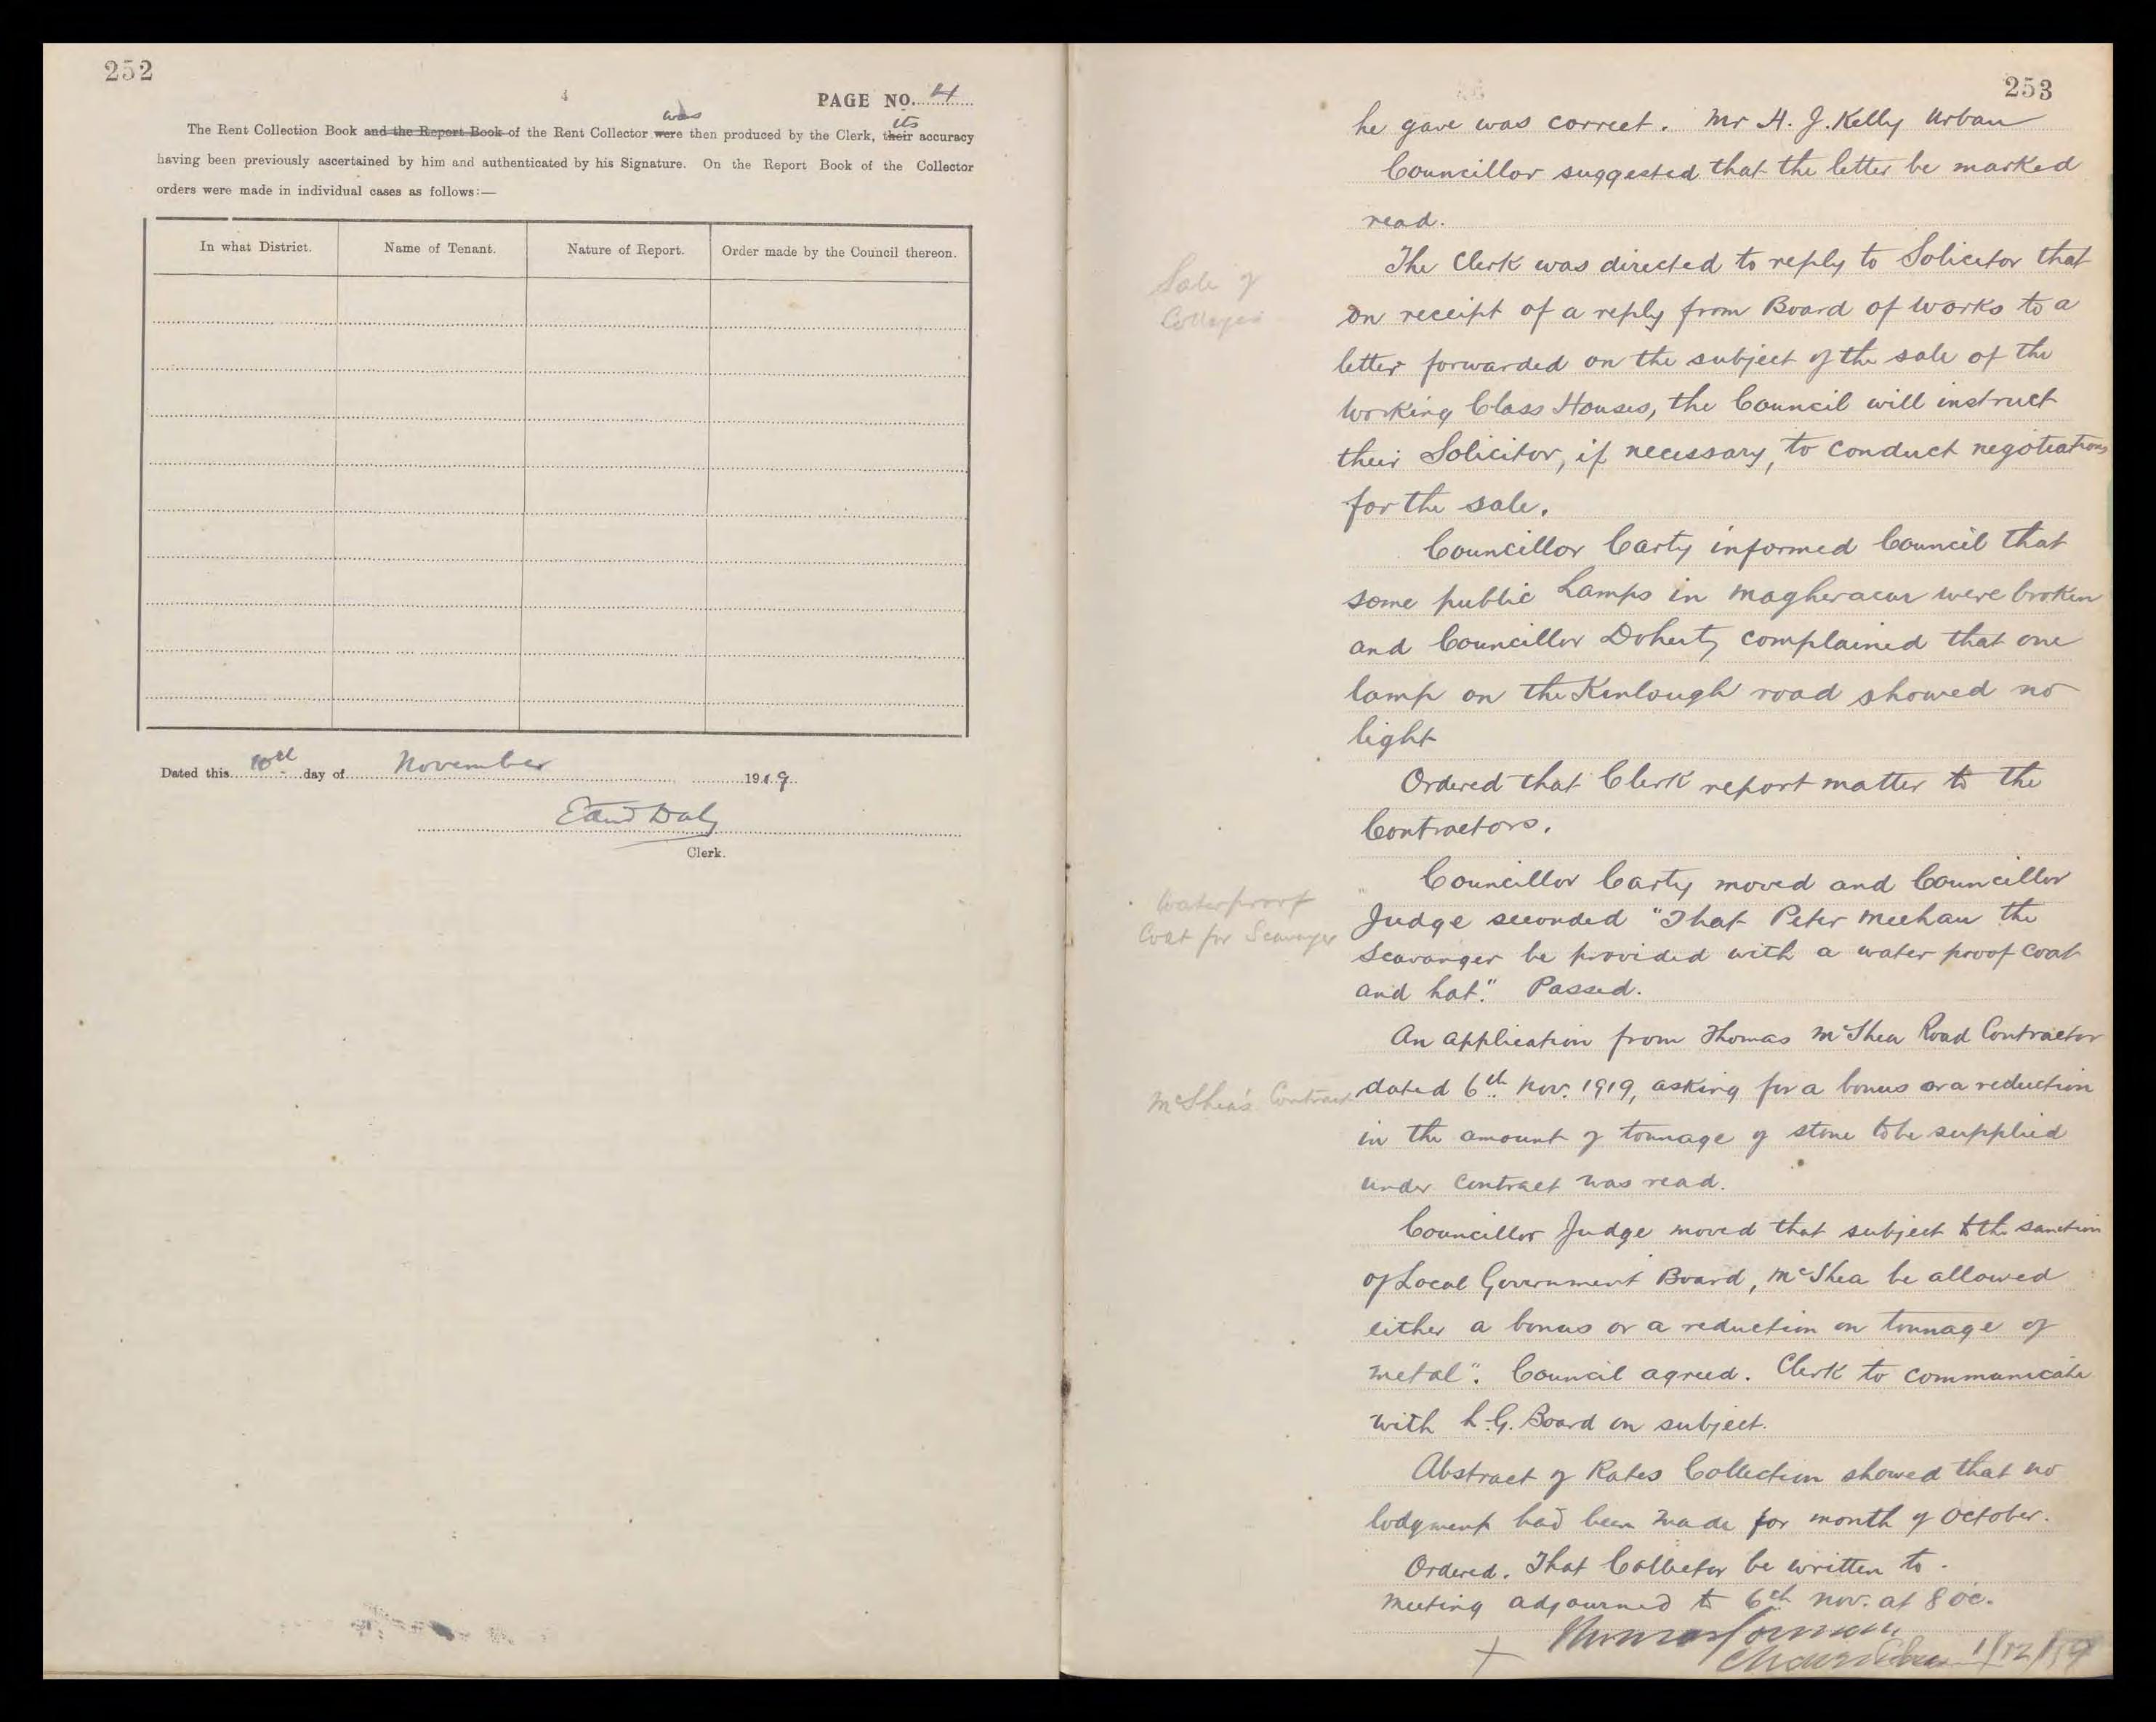 252
PAGE NO. 4
was its
The Rent Collection Book and the Report Book of the Rent Collector were then produced by the Clerk, their accuracy
having been previously ascertained by him and authenticated by his Signature. On the Report Book of the Collector
orders were made in individual cases as follows:—
In what District. Name of Tenant. Nature of Report. Order made by the Council thereon.
Dated this 10th day of November 1919
Edmd Daly
Clerk.
253
he gave was correct. Mr H. J. Kelly Urban
Councillor suggested that the letter be marked
read.
Sale of
Cottages
The Clerk was directed to reply to Solicitor that
on receipt of a reply from Board of Works to a
letter forwarded on the subject of the sale of the
Working Class Houses, the Council will instruct
their Solicitor, if necessary, to conduct negotiations
for the sale.
Councillor Carty informed Council that
some public Lamps in Magheracar were broken
and Councillor Doherty complained that one
lamp on the Kinlough road showed no
light
Ordered that Clerk report matter to the
Contractors.
Waterproof
Coat for Scavenger
Councillor Carty moved and Councillor
Judge seconded "That Peter Meehan the
Scavanger be provided with a water proof coat
and hat." Passed.
An application from Thomas McShea Road Contractor
McShea's Contract
dated 6th Nov. 1919, asking for a bonus or a reduction
in the amount of tonnage of stone to be supplied
under contract was read.
Councillor Judge moved that subject to the sanction
of Local Government Board, McShea be allowed
either a bonus or a reduction on tonnage of
metal". Council agreed. Clerk to communicate
with L.G. Board on subject.
Abstract of Rates Collection showed that no
lodgment had been made for month of October.
Ordered. That Collector be written to.
Meeting adjourned to 6th Nov. at 8 oc.
Thomas Gorman
Chairman 1/12/19